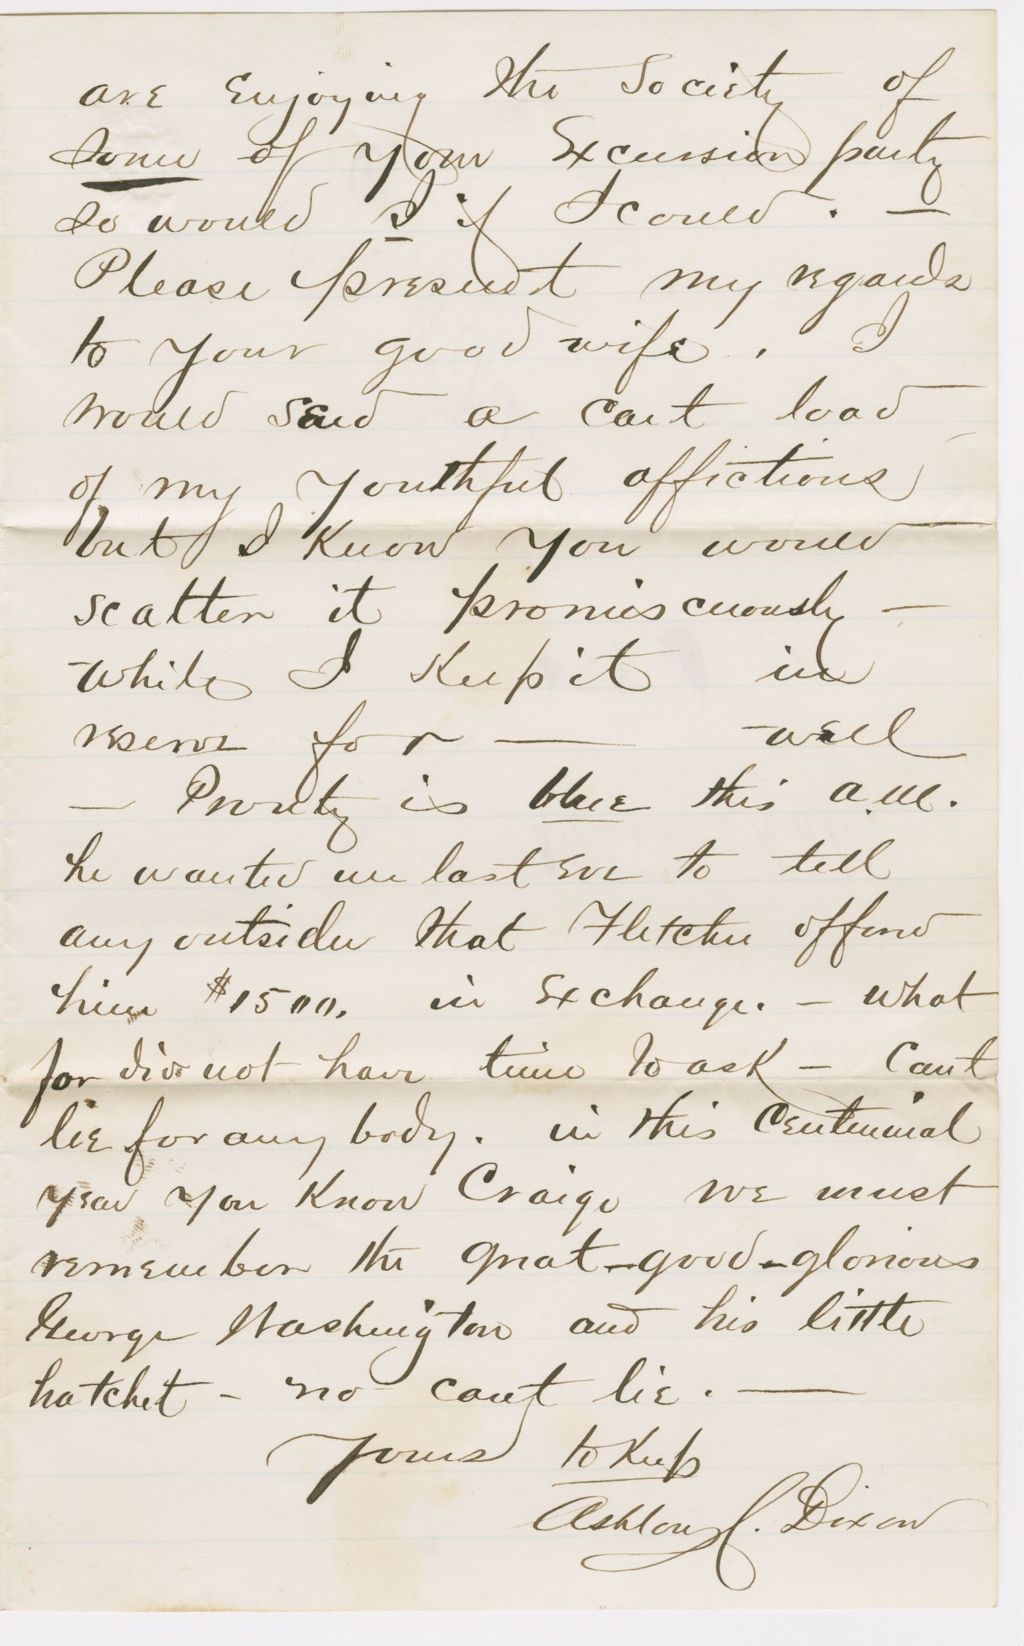 are Enjoying the Society of
some of your Excursion party
so would I if I could. —
Please present my regards
to your good wife. I
would send a cart load
of my youthful affections
but I Know you would
scatter it promiscuously —
while I Keep it in
reserve for — well
— Prouty is blue this a.m.
he wanted me last Eve to tell
any outsider that Fletcher offered
him $1500. in Exchange. — what
for did not have time to ask — Cant
lie for any body. in this Centennial
year you Know Craige we must
remember the great-good-glorious
George Washington and his little
hatchet - no cant lie. —
Yours to Keep
Ashton C. Dixon